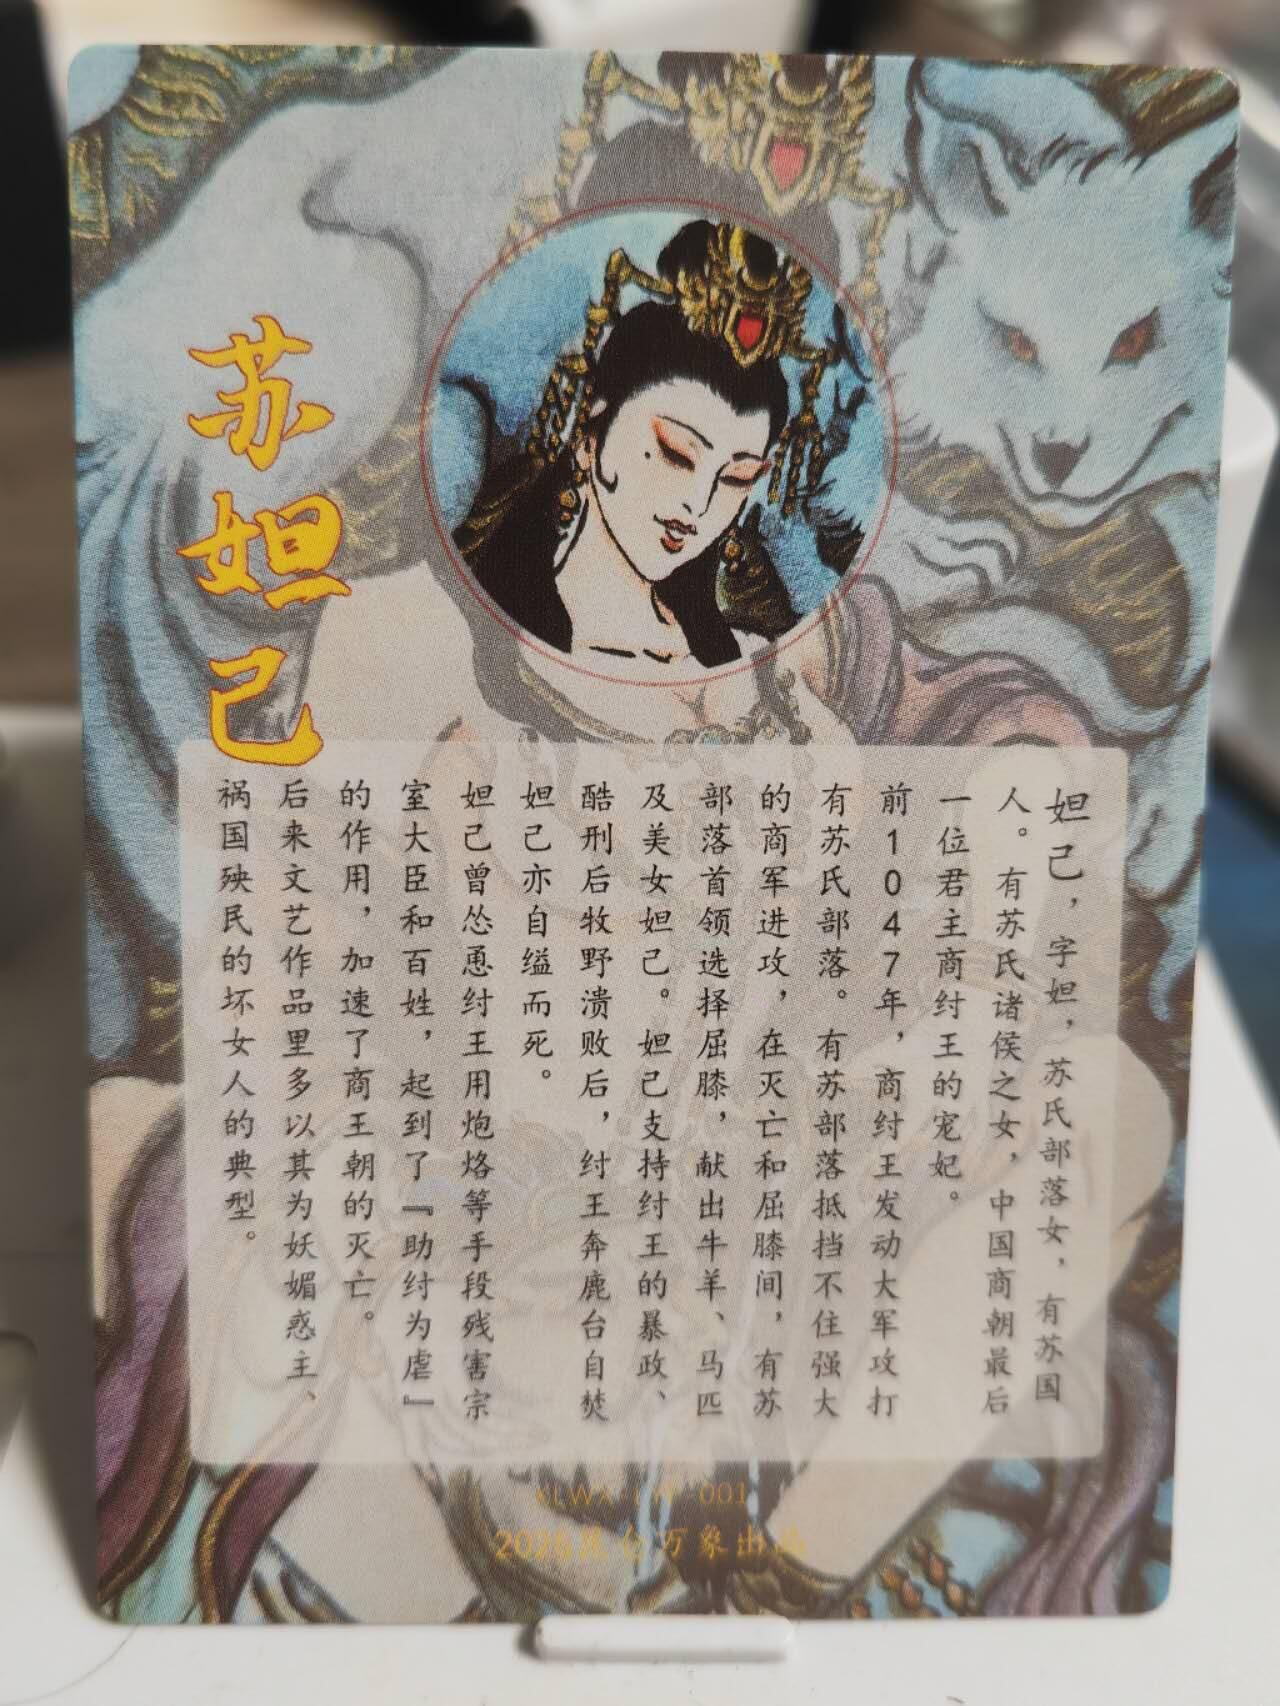 苏妲己
妲己，字妲，苏氏部落女，有苏国
人。有苏氏诸侯之女，中国商朝最后
一位君主商纣王的宠妃。
前1047年，商纣王发动大军攻打
有苏氏部落。有苏部落抵挡不住强大
的商军进攻，在灭亡和屈膝间，有苏
部落首领选择屈膝，献出牛羊、马匹
及美女妲己。妲己支持纣王的暴政、
酷刑后牧野溃败后，纣王奔鹿台自焚
妲己亦自缢而死。
妲己曾怂恿纣王用炮烙等手段残害宗
室大臣和百姓，起到了『助纣为虐』
的作用，加速了商王朝的灭亡。
后来文艺作品里多以其为妖媚惑主、
祸国殃民的坏女人的典型。
001
万象出品